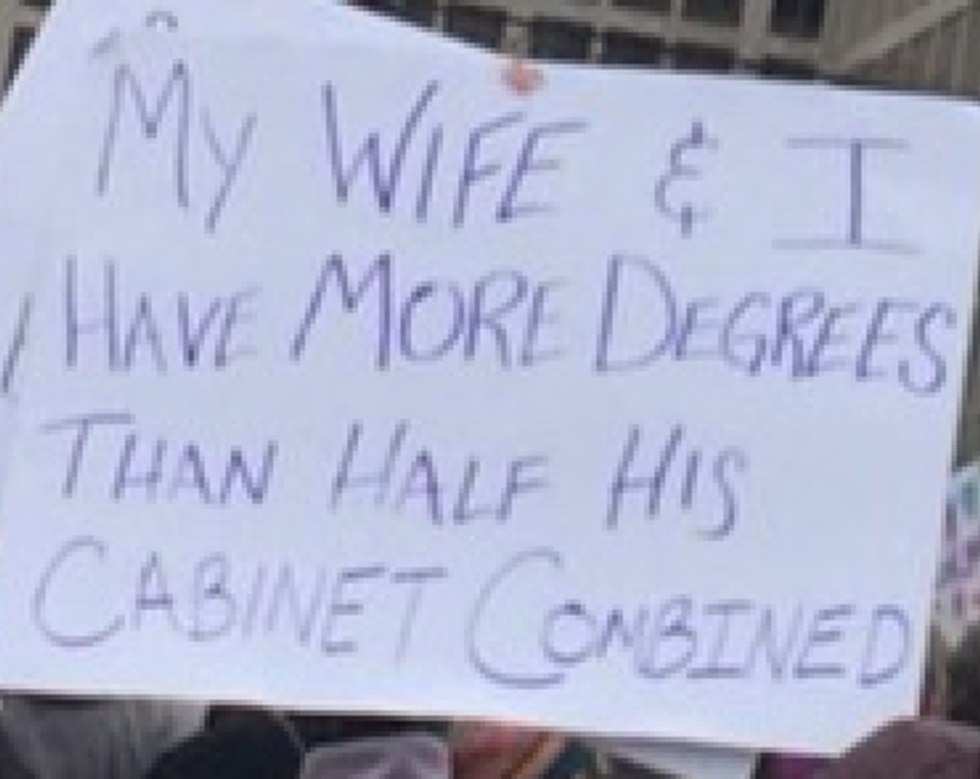 MY WIFE & I
HAVE MORE DEGREES
THAN HALF HIS
CABINET COMBINED